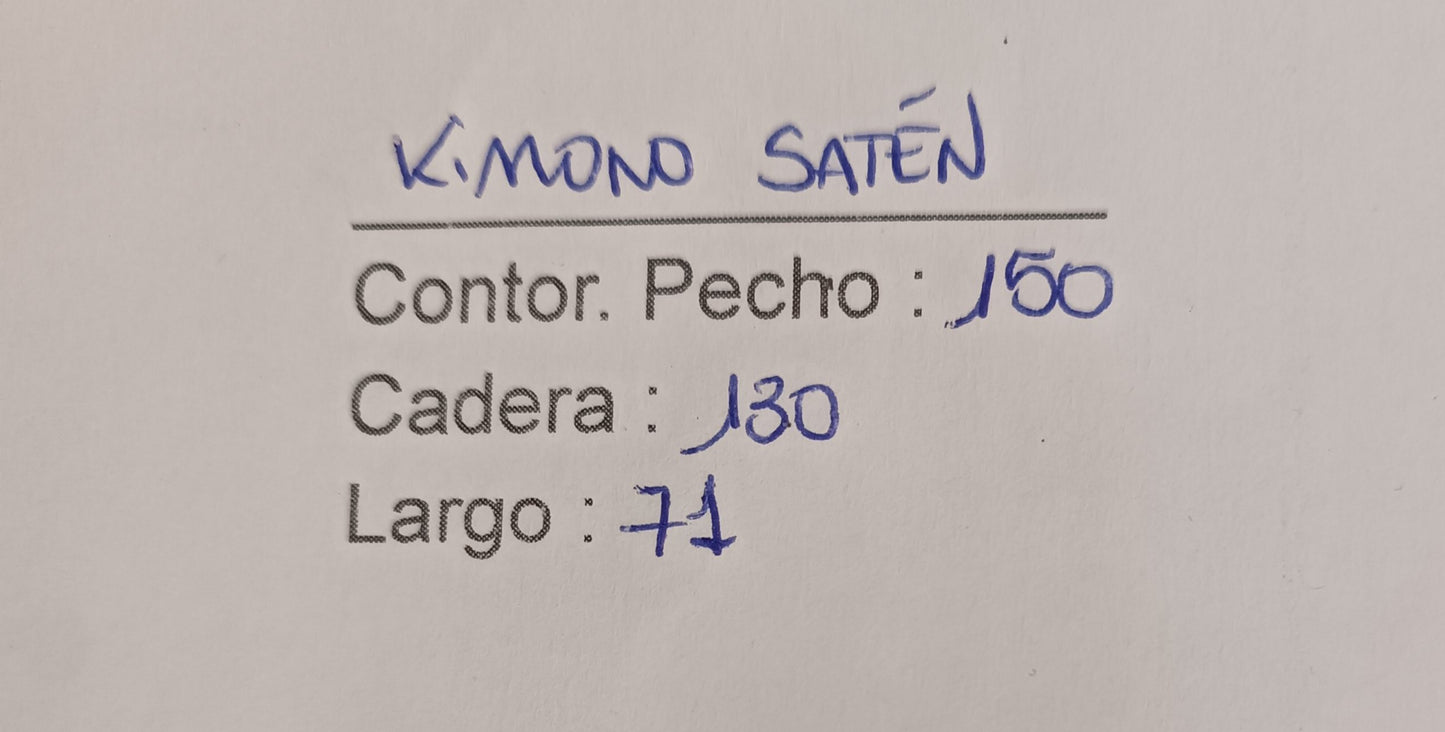 KIMONO SATÉN
Contor. Pecho : 150
Cadera : 130
Largo : 71